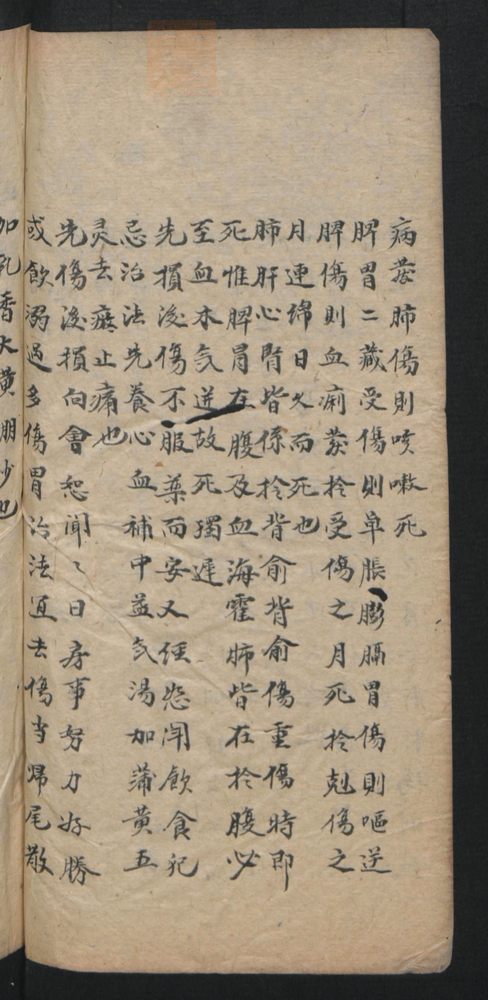 病發肺傷則咳嗽死
脾胃二藏受傷則卑脹膨膈胃傷則嘔逆
脾傷則血痢發於受傷之月死於剋傷之
月連綿日久而死也
肺肝心腎皆係於背俞背俞傷重傷時即
死惟脾胃在腹及血海霍肺皆在於腹必
至血木氣逆故死獨遲
先損後傷不服藥而安又經怒闹飲食犯
忌治法先養心血補中益气湯加蒲黄五
灵去瘀止痛也
先傷後損向會恕聞〻日房事努力好勝
或飲溺過多傷胃治法宜去傷当帰尾散
加乳香大黄朋沙也